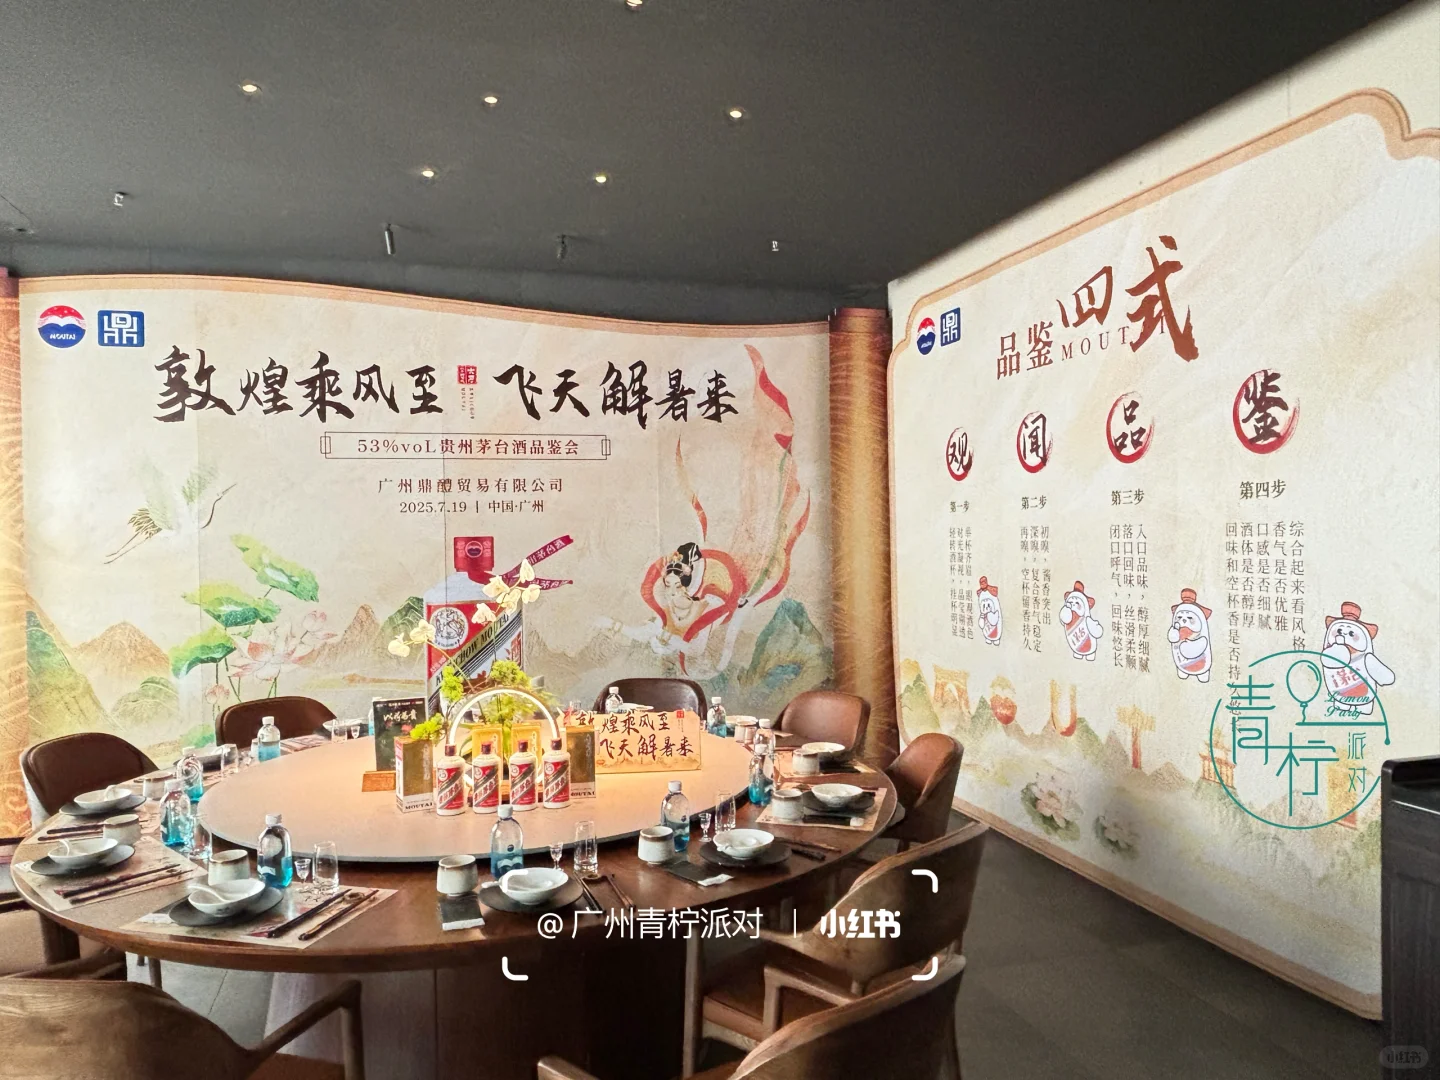 MOUTAI
鼎
敦煌乘风至
飞天解暑来
53%voL贵州茅台酒品鉴会
广州鼎醴贸易有限公司
2025.7.19 | 中国·广州
MOUTAI
敦煌乘风至
飞天解暑来
鼎
品鉴四式
MOUT
观
闻
品
鉴
第一步
第二步
第三步
第四步
初嗅，酱香突出
深嗅，复合香气稳定
再嗅，空杯留香持久
入口品味，醇厚细腻
落口回味，丝滑柔顺
闭口呼气，回味悠长
综合起来看风格
香气是否优雅
口感是否细腻
酒体是否醇厚
回味和空杯香是否持
青柠派对
Lemon
Party
@广州青柠派对 | 小红书
小红书